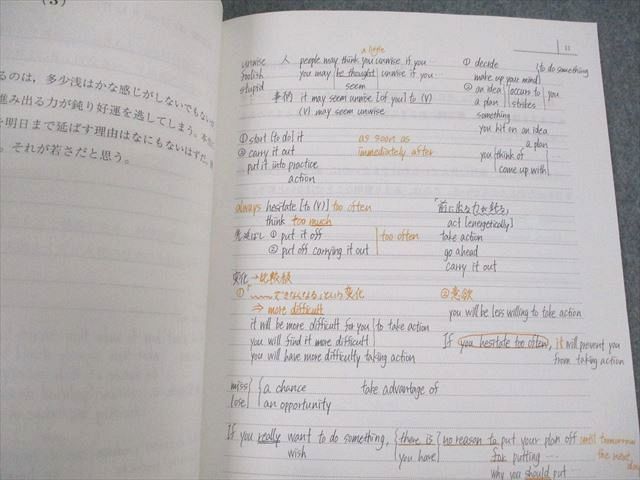 (3)
るのは，多少浅はかな感じがしないでもない
進み出る力が鈍り好運を逃してしまう。本
を明日まで延ばす理由はなにもないはずだ。
。それが若さだと思う。
11
a little
unwise 人 people may think you unwise if you…
foolish you may be thought unwise if you…
stupid seem
事柄 it may seem unwise [of you] to (V)
(V) may seem unwise
① decide [to do something
make up your mind]
② an idea occurs to you
a plan strikes
something
you hit on an idea
a plan
you think of
come up with
① start [to do] it as soon as
② carry it out immediately after
put it into practice
action
always hesitate [to (V)] too often
think too much
① put it off too often
② put off carrying it out
「前に出る力を鈍る」
act [energetically]
take action
go ahead
carry it out
変化→比較級
① 「〜〜できなくなる」という変化
⇒ more difficult
it will be more difficult for you to take action
you will find it more difficult
you will have more difficulty taking action
②意欲
you will be less willing to take action
If you hesitate too often, it will prevent you
from taking action
miss a chance take advantage of
lose an opportunity
If you really want to do something, there is no reason to put your plan off until tomorrow
wish you have for putting … the next day
why you should put …